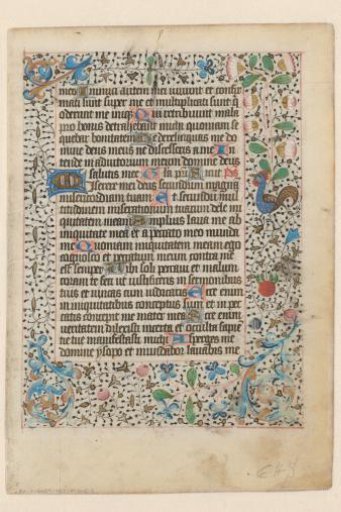 mei Inimici autem mei vivunt et confir
mati sunt super me et multiplicati sunt q
oderunt me iniq Qui retribuunt mala
pro bonis detrahebant michi quoniam se
quebar bonitatem Ne derelinquas me do
mine deus meus ne discesseris a me In
tende in adiutorium meum domine deus
salutis mee Gla pri Sicut Ps
Miserere mei deus secundum magnam
misericordiam tuam Et secundum mul
titudinem miserationum tuarum dele ini
quitatem meam Amplius lava me ab
iniquitate mea et a peccato meo munda
me Quoniam iniquitatem meam ego
cognosco et peccatum meum contra me
est semper Tibi soli peccavi et malum
coram te feci ut iustificeris in sermonibus
tuis et vincas cum iudicaris Ecce enim
in iniquitatibus conceptus sum et in pec
catis concepit me mater mea Ecce enim
veritatem dilexisti incerta et occulta sapie
tie tue manifestasti michi Asperges me
domine ysopo et mundabor lavabis me